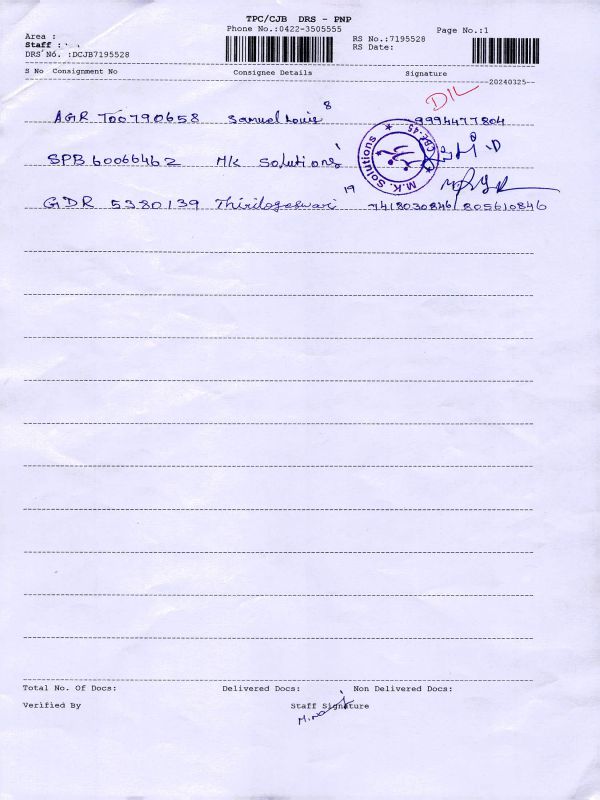 TPC/CJB DRS - PNP
Phone No.:0422-3505555
Page No.:1
Area :
RS No.:7195528
Staff :
RS Date:
DRS No. :DCJB7195528
S No Consignment No Consignee Details Signature
20240325
DIL
8
AGR T00790658 Samuel Louis 9994477804
SPB 60066462 MK Solutions
M.K. Solutions ★ CBE-45 ★
19
GDR 5380139 Thirilogeswari 7418030846/805610846
Total No. Of Docs: Delivered Docs: Non Delivered Docs:
Verified By Staff Signature